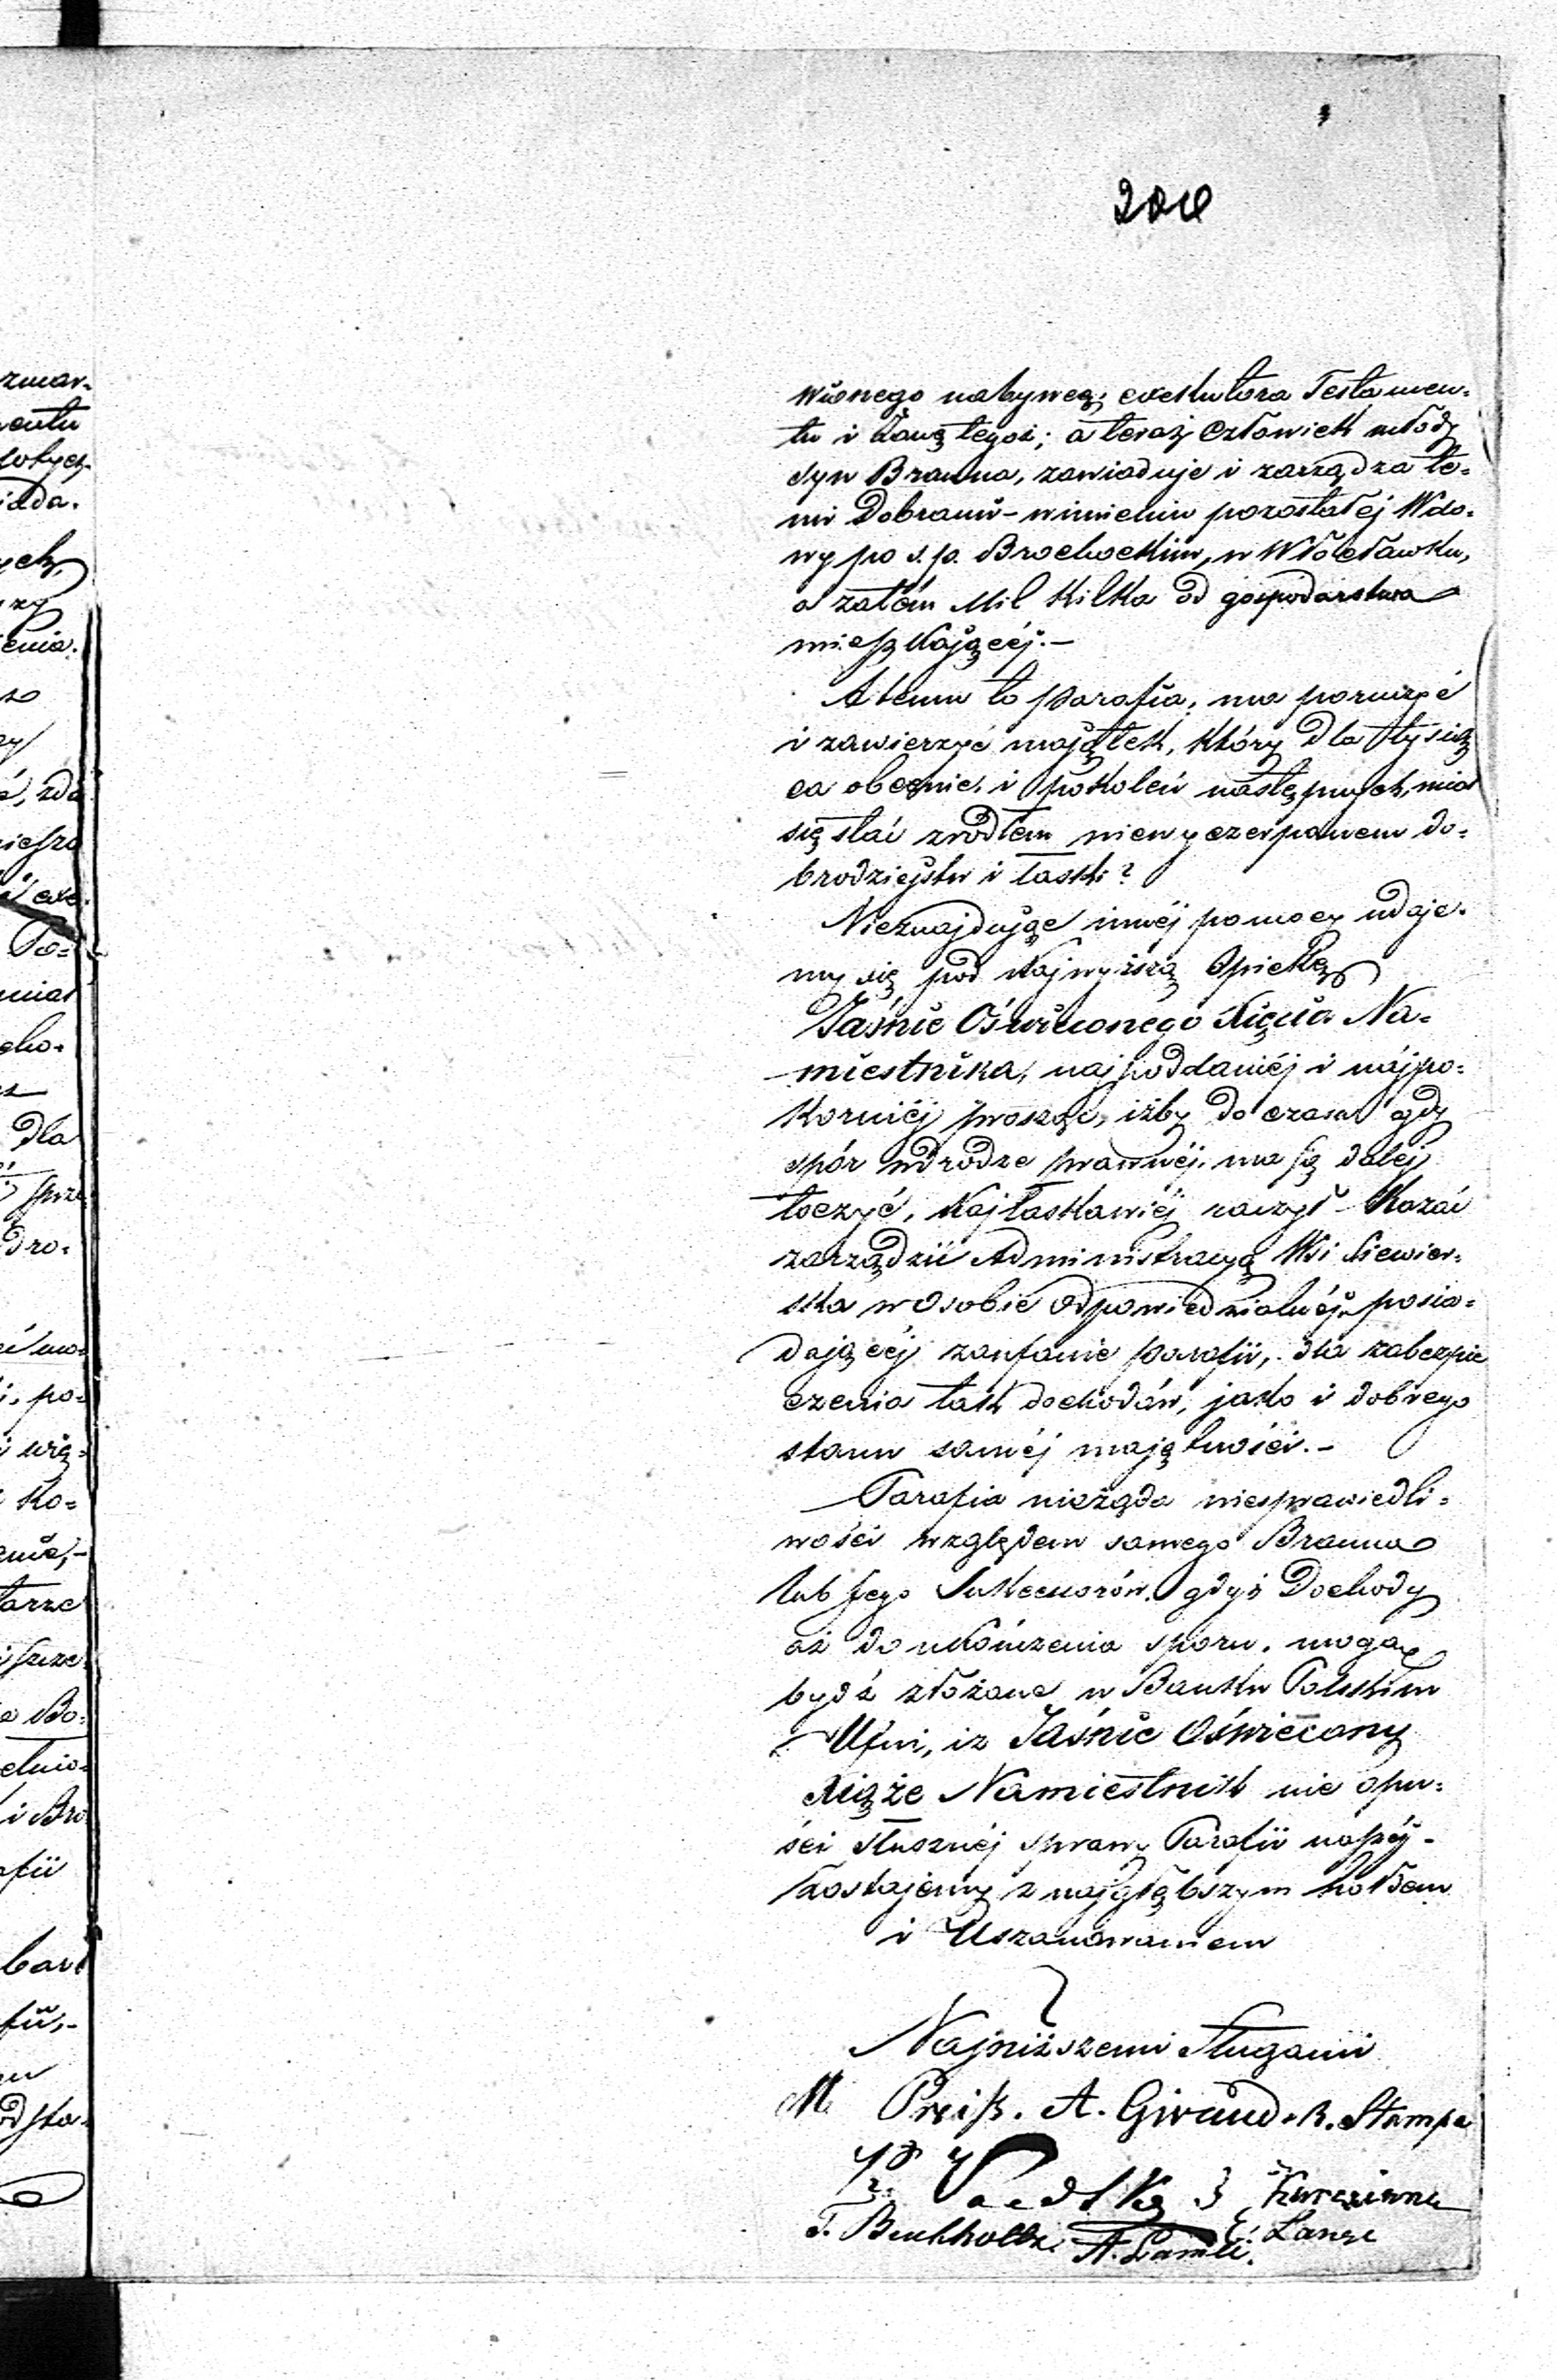 204
wionego nabywcę; exekutora Testamen-
tu i żonę tegoż; a teraz Człowiek młody
syn Brauna, zawiaduje i zarządza te-
mi Dobrami – wimieniu pozostałéj Wdo-
wy po s.p. Brochockim, w Włocławku,
a zatém Mil Kilka od gospodarstwa
mieszkającéj.–
A temu to Parafia, ma poruczyć
i zawierzyć majątek, który dla tysią
ca obecnie, i pokoleń następnych, miał
się stać zrodłem niewyczerpanem do-
brodziejstw i łaski?
Nieznajdując innéj pomocy udaje-
my się pod Najwyższą Opiekę
Jaśnie Oświeconego Xięcia Na-
miestnika, najpoddaniéj i najpo-
korniéj prosząc, iżby do czasu gdy
spór wdrodze prawnéj, ma się daléj
toczyć, Najłaskawiéj raczył Kazać
zarządzić Administracyą Wsi Siewier-
ska w Osobie odpowiedzialnéj, posia-
dającéj zaufanie parafii, dla zabezpie
czenia tak dochodów, jako i dobrego
stanu saméj majętności.–
Parafia nieżąda niesprawiedli-
wości względem samego Brauna
lub Jego Sukcessorów, gdyż Dochody
aż do ukończenia sporu, mogą
bydź złożone w Banku Polskim
Ufni, iż Jaśnie Oświecony
Xiąże Namiestnik nie opu-
ści słusznéj sprawy Parafii naszéj –
Zostajemy z najgłębszym hołdem
i Uszanowaniem
Najniższemi Sługami
M Preiß. A. Giraud. R. Stampe
T. Buchholtz. A. Lamli. E. Lange
zmar-
dla
dro-
po-
wię-
ko-
Bo-
i Bro